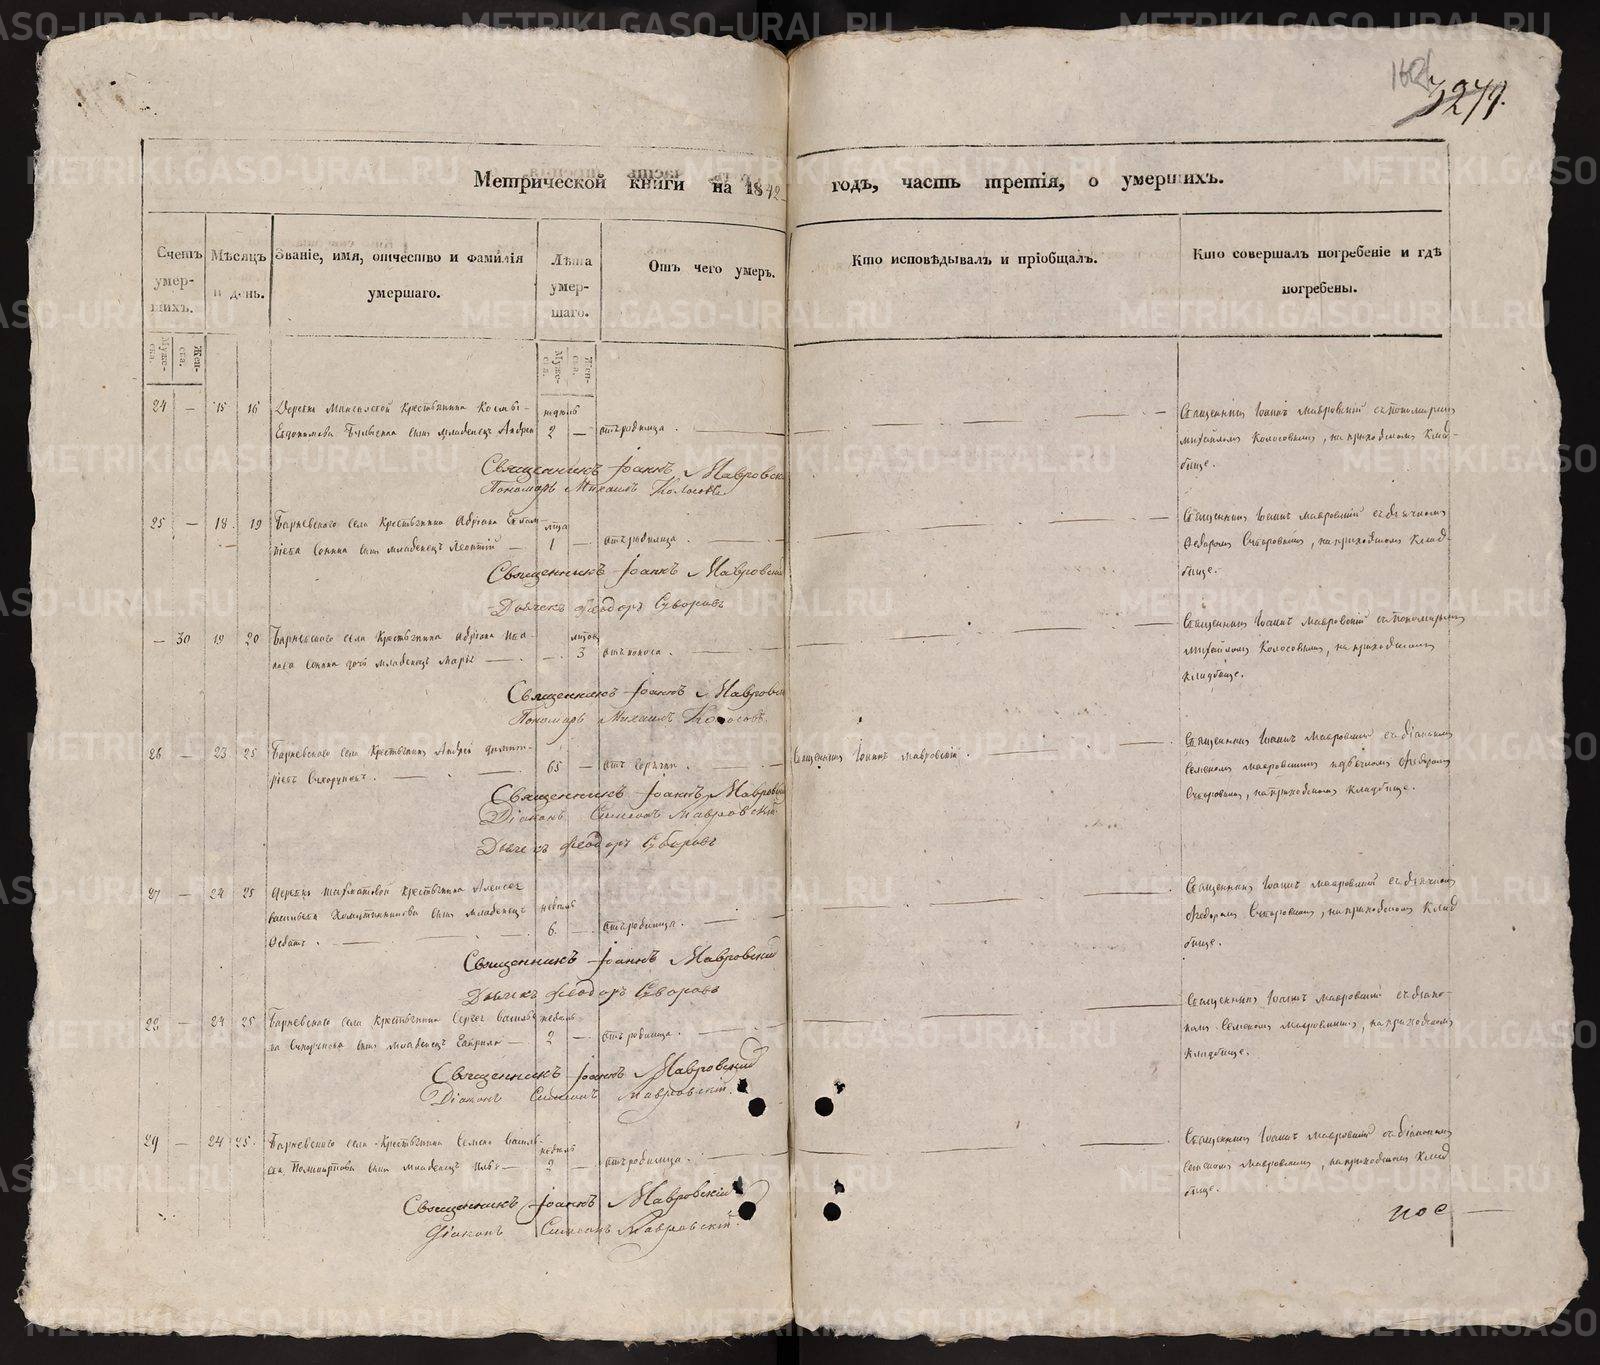 3279.
Метрической книги на 1842 годъ, часть третія, о умершихъ.
Счетъ умер-шихъ.
Мѣсяцъ и день.
Званіе, имя, отчество и фамилія умершаго.
Лѣта умер-шаго.
Отъ чего умеръ.
Кто исповѣдывалъ и пріобщалъ.
Кто совершалъ погребеніе и гдѣ погребены.
Муже-ска.
Жен-ска.
Муже-ска.
Жен-ска.
24 — 15 16 Деревни крестьянина Космы
сынъ младенецъ Андрей
недѣль 2 — отъ родимца.
Священникъ Іоаннъ Мавровскій съ пономаремъ
Михайломъ Колосовымъ, на приходскомъ клад-
бище.
Священникъ Іоаннъ Мавровскій
Пономарь Михаилъ Колосовъ
25 — 18 19 Барневскаго села крестьянина Адріана
сынъ младенецъ Леонтій —
лѣта 1 — отъ родимца.
Священникъ Іоаннъ Мавровскій съ дьячкомъ
Федоромъ Суворовымъ, на приходскомъ клад-
бище.
Священникъ Іоаннъ Мавровскій
Дьячекъ Феодоръ Суворовъ
— 30 19 20 Барневскаго села крестьянина Адріана Ива-
нова дочь младенецъ Марья
— 3 отъ поноса.
Священникъ Іоаннъ Мавровскій съ пономаремъ
Михайломъ Колосовымъ, на приходскомъ
кладбище.
Священникъ Іоаннъ Мавровскій
Пономарь Михаилъ Колосовъ
26 — 23 25 Барневскаго села крестьянинъ Андрей Димит-
ріевъ Сухоруковъ.
65 — отъ горячки.
Священникъ Іоаннъ Мавровскій.
Священникъ Іоаннъ Мавровскій съ діакономъ
Семеномъ Мавровскимъ и дьячкомъ Федоромъ
Суворовымъ, на приходскомъ кладбище.
Священникъ Іоаннъ Мавровскій
Діаконъ Симеонъ Мавровскій
Дьячекъ Феодоръ Суворовъ
27 — 24 25 Деревни крестьянина Алексея
Васильева Хомутинникова сынъ младенецъ
недѣль 6 — отъ родимца.
Священникъ Іоаннъ Мавровскій съ дьячкомъ
Федоромъ Суворовымъ, на приходскомъ клад
бище.
Священникъ Іоаннъ Мавровскій
Дьячекъ Феодоръ Суворовъ
28 — 24 25 Барневскаго села крестьянина Сергея Василье
ва Сухорукова сынъ младенецъ Гаврило —
недѣль 2 — отъ родимца.
Священникъ Іоаннъ Мавровскій съ діако-
номъ Семеномъ Мавровскимъ, на приходскомъ
кладбище.
Священникъ Іоаннъ Мавровскій
Діаконъ Симеонъ Мавровскій.
29 — 24 25. Барневскаго села крестьянина Семена Василь-
ева сынъ младенецъ Илья —
недѣль 2 — отъ родимца.
Священникъ Іоаннъ Мавровскій съ діакономъ
Семеномъ Мавровскимъ, на приходскомъ клад
бище.
Священникъ Іоаннъ Мавровскій
Діаконъ Симеонъ Мавровскій.
METRIKI.GASO-URAL.RU